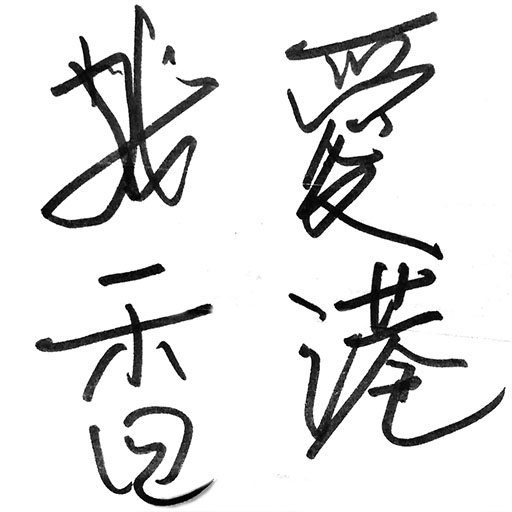 我愛
香港